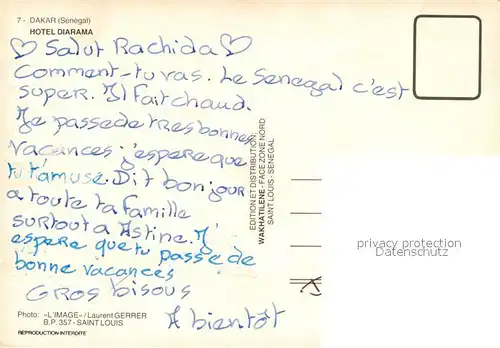 7 - DAKAR (Senegal)
HOTEL DIARAMA
♡ Salut Rachida ♡
Comment-tu vas. Le Senegal c'est
super. Il Fait chaud.
Je passe de tres bonnes
vacances j'espere que
tu t'amuse. Dit bonjour
a toute ta famille
surtout a Astine. J'
espere que tu passe de
bonne vacances
Gros bisous
A bientôt
Photo: «L'IMAGE» / Laurent GERRER
B.P. 357 - SAINT LOUIS
REPRODUCTION INTERDITE
EDITION ET DISTRIBUTION:
WAKHATILENE - FACE ZONE NORD
SAINT LOUIS - SENEGAL
privacy protection
Datenschutz